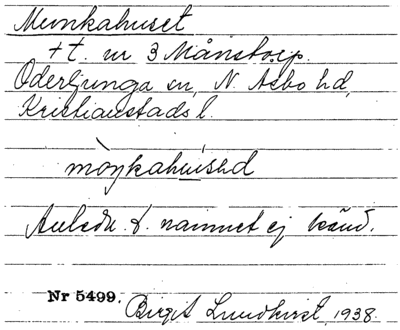 Munkahuset
+t. nr 3 Månstorp.
Oderljunga sn, N. Åsbo hd,
Kristianstads l.
mòŋkahùisəd
Anledn. t. namnet ej känd.
Nr 5499. Birgit Lundkvist, 1938.